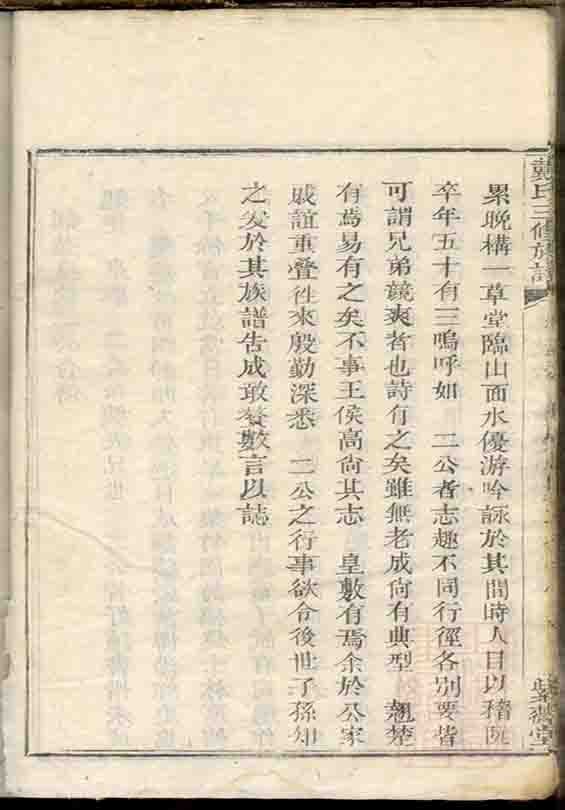 戴氏三修族譜
累晚構一草堂臨山面水優游吟詠於其間時人目以稽阮
卒年五十有三嗚呼如 二公者志趣不同行徑各別要皆
可謂兄弟競爽者也詩有之矣雖無老成尚有典型 翹楚
有焉易有之矣不事王侯高尚其志 皇敷有焉余於公家
戚誼重疊徃來殷勤深悉 二公之行事欲令後世子孫知
之爰於其族譜告成敢贅數言以誌